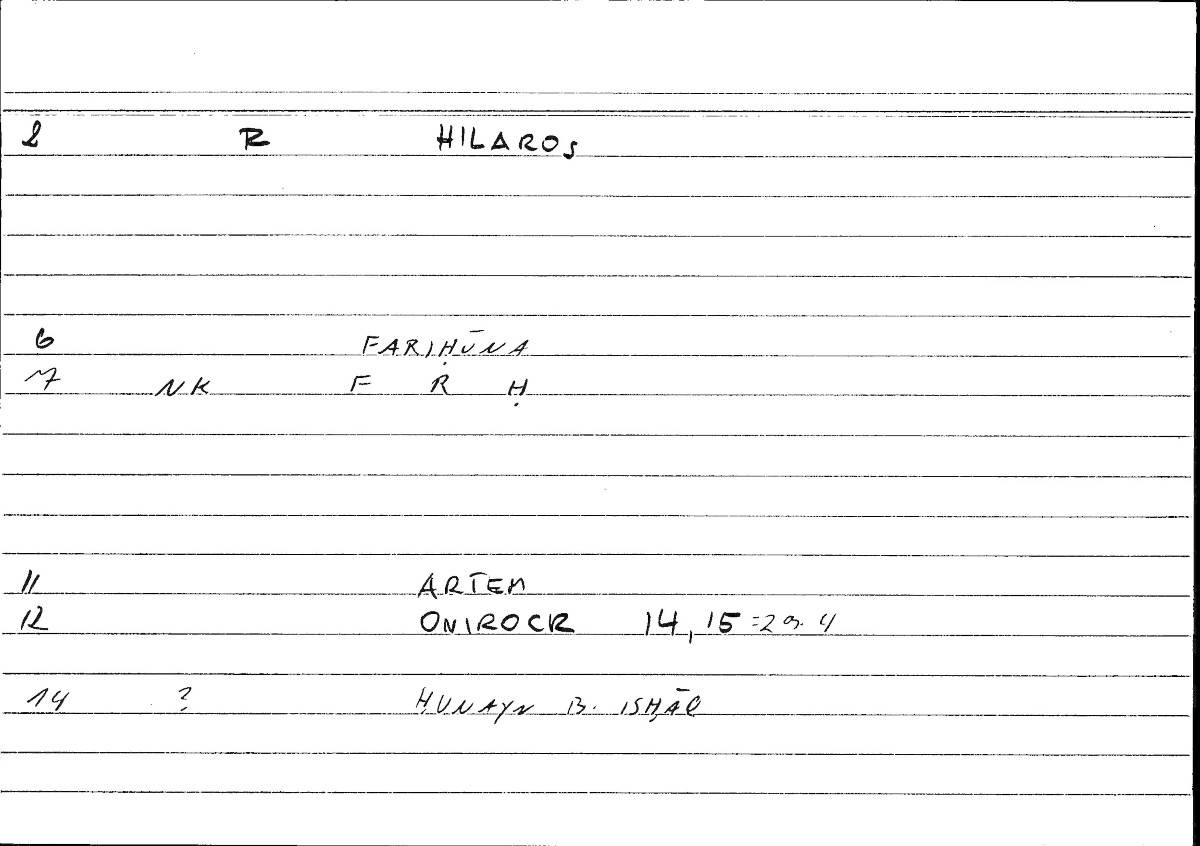 2 R HILAROS
6 FARIḤŪNA
7 NK F R Ḥ
11 ARTEM
12 ONIROCR 14,15 =29. 4
14 ? ḤUNAYN B. ISḤĀQ